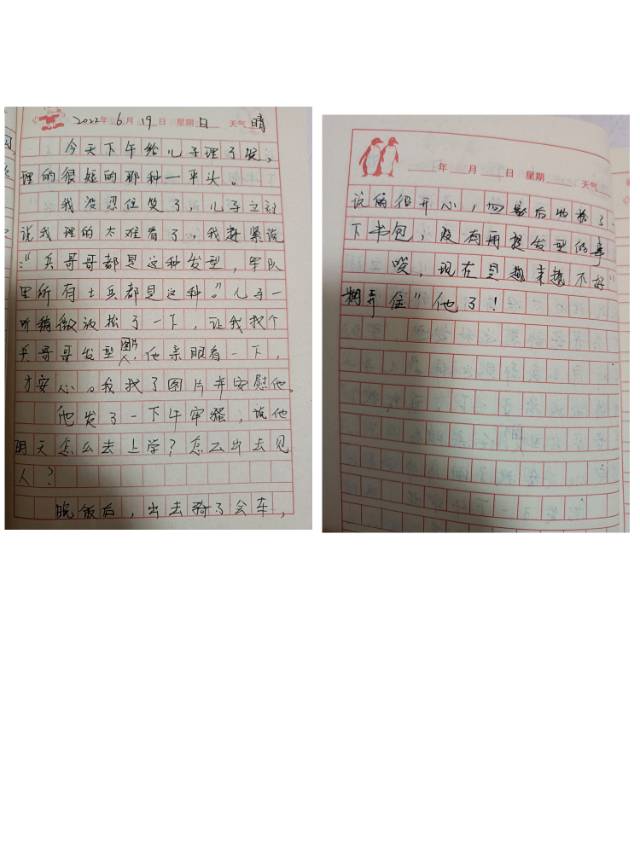 2022年 6月 19日 星期日 天气 晴
今天下午给儿子理了发，
理的很短的那种一平头。
我没忍住笑了，儿子之
说我理的太难看了，我赶紧说
："兵哥哥都是这种发型，军队
里所有士兵都是这种。"儿子一
听稍微放松了一下，让我找个
兵哥哥发型图片，他亲眼看一下，
才安心。我找了图片并安慰他。
他发了一下午牢骚，说他
明天怎么去上学？怎么出去见
人？
晚饭后，出去骑了会车，
年 月 日 星期 天气
说的很开心，回来后收拾了
下书包，没有再提发型的事
唉，现在是越来越不好"
糊弄住"他了！